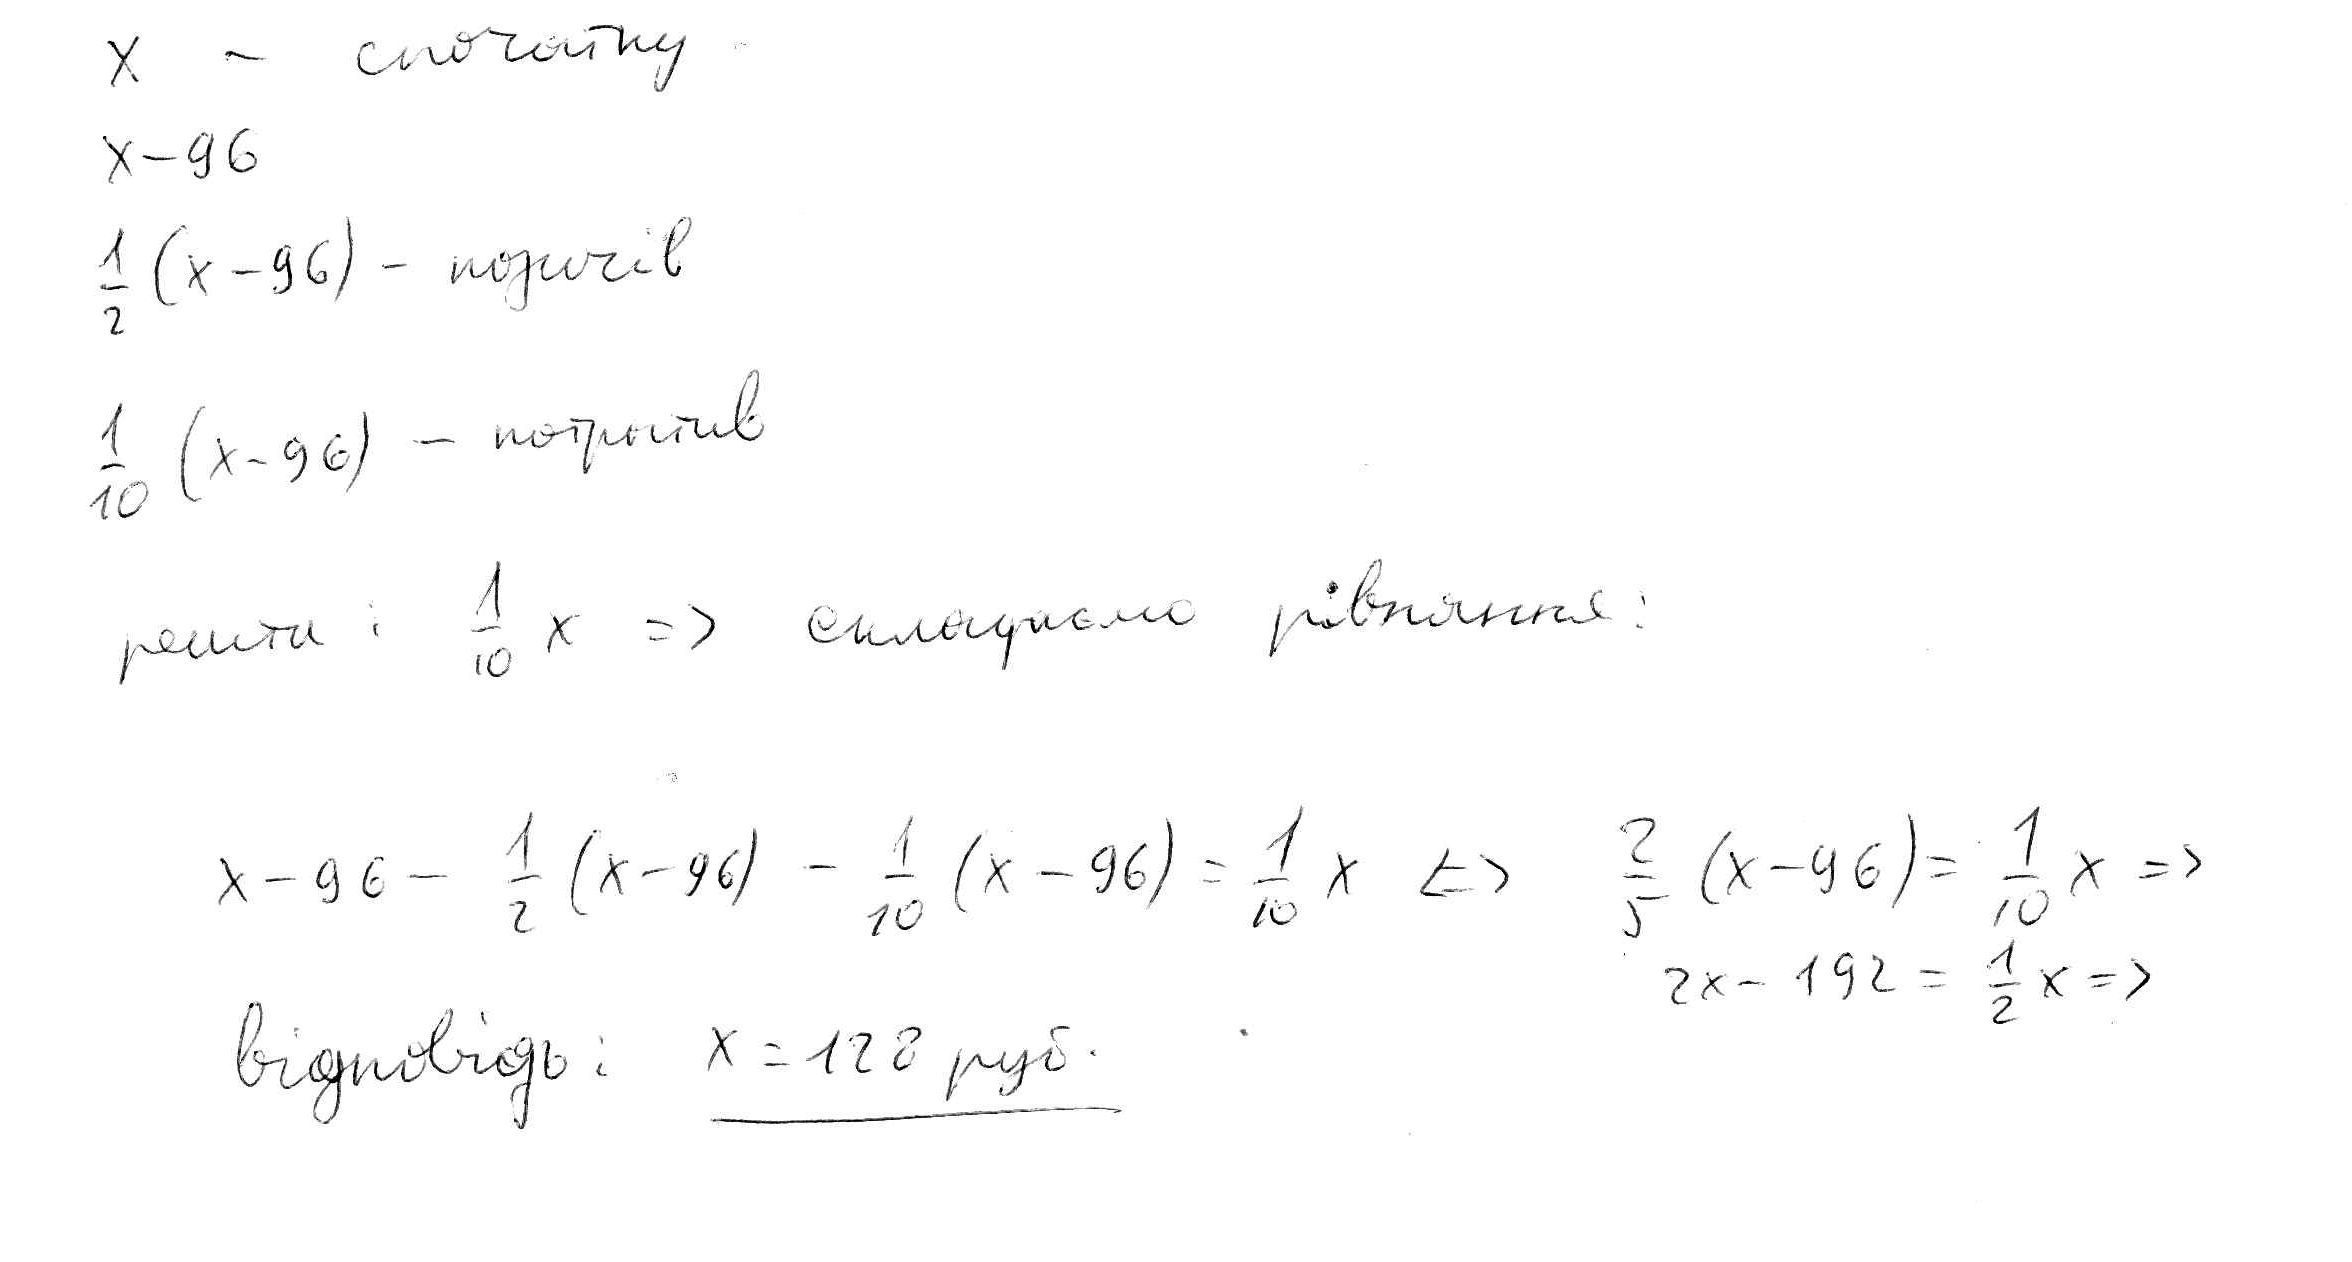 x – спочатку
x – 96
1/2 (x – 96) – позичив
1/10 (x – 96) – потратив
решта: 1/10 x => складаємо рівняння:
x – 96 – 1/2 (x – 96) – 1/10 (x – 96) = 1/10 x <=> 2/5 (x – 96) = 1/10 x =>
2x – 192 = 1/2 x =>
відповідь: x = 128 руб.